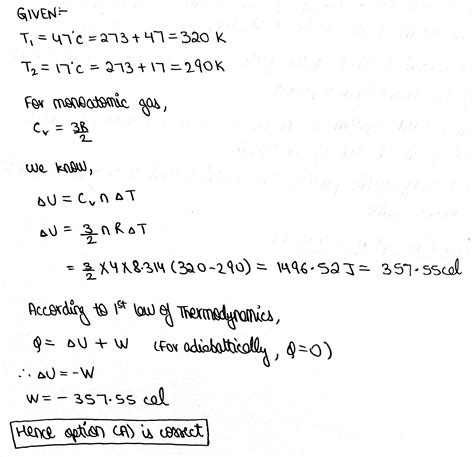 GIVEN:-
T₁ = 47°C = 273 + 47 = 320 K
T₂ = 17°C = 273 + 17 = 290K
For monoatomic gas,
Cᵥ = 3R/2
We know,
ΔU = Cᵥ n ΔT
ΔU = 3/2 n R ΔT
= 3/2 × 4 × 8.314 (320-290) = 1496.52 J = 357.55 cal
According to 1st law of Thermodynamics,
Q = ΔU + W (For adiabattically, Q=0)
∴ ΔU = -W
W = - 357.55 cal
Hence option (A) is correct